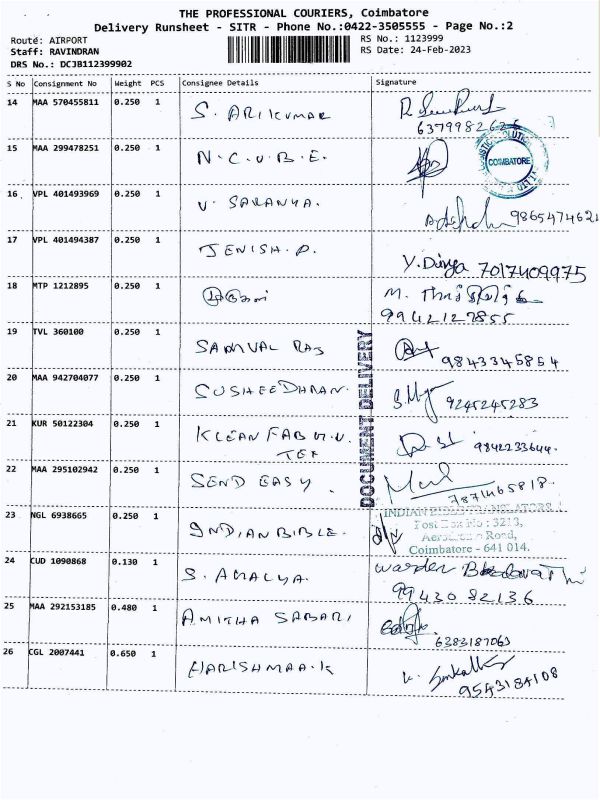 THE PROFESSIONAL COURIERS, Coimbatore
Delivery Runsheet - SITR - Phone No.:0422-3505555 - Page No.:2
Route: AIRPORT RS No.: 1123999
Staff: RAVINDRAN RS Date: 24-Feb-2023
DRS No.: DCJB112399902
S No Consignment No Weight PCS Consignee Details Signature
14 MAA 570455811 0.250 1 S. ARIKUMAR
6379982626
15 MAA 299478251 0.250 1 N.C.U.B.E. COIMBATORE
16 VPL 401493969 0.250 1 V. SARANYA. 9865474621
17 VPL 401494387 0.250 1 JENISH. P. Y. Divya 7017409975
18 MTP 1212895 0.250 1 M.
9942127855
19 TVL 360100 0.250 1 SAMUAL RAJ 9843345854
20 MAA 942704077 0.250 1 SUSHEEDHARAN. 9245245283
21 KUR 50122304 0.250 1 KLEAN FAB 9842233644
22 MAA 295102942 0.250 1 SEND EASY. 7871465818
DOCUMENT DELIVERY
23 NGL 6938665 0.250 1 INDIANBIBLE. INDIAN BIBLE TRANSLATORS
Post Box No : 3213,
Road,
Coimbatore - 641 014.
24 CUD 1090868 0.130 1 S. AMALYA. warden
9943082136
25 MAA 292153185 0.480 1 AMITHA SABARI
6383187063
26 CGL 2007441 0.650 1 HARISHMAA.K
9543184108